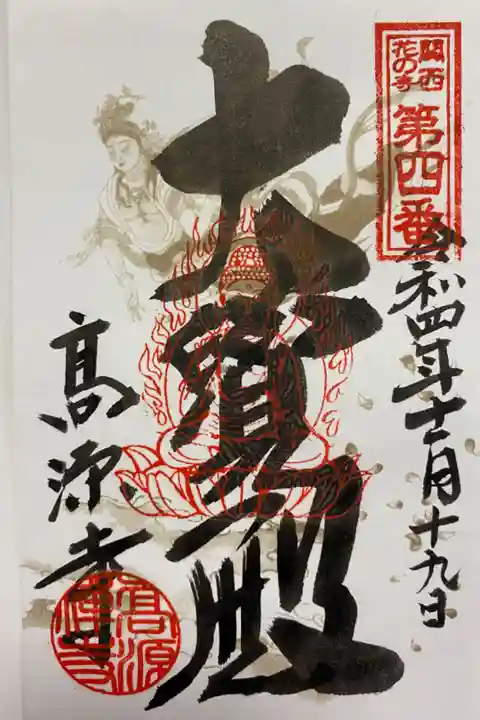 関西
花の寺
第四番
令和四年十一月十九日
大雄寶殿
高源寺
高源禅寺